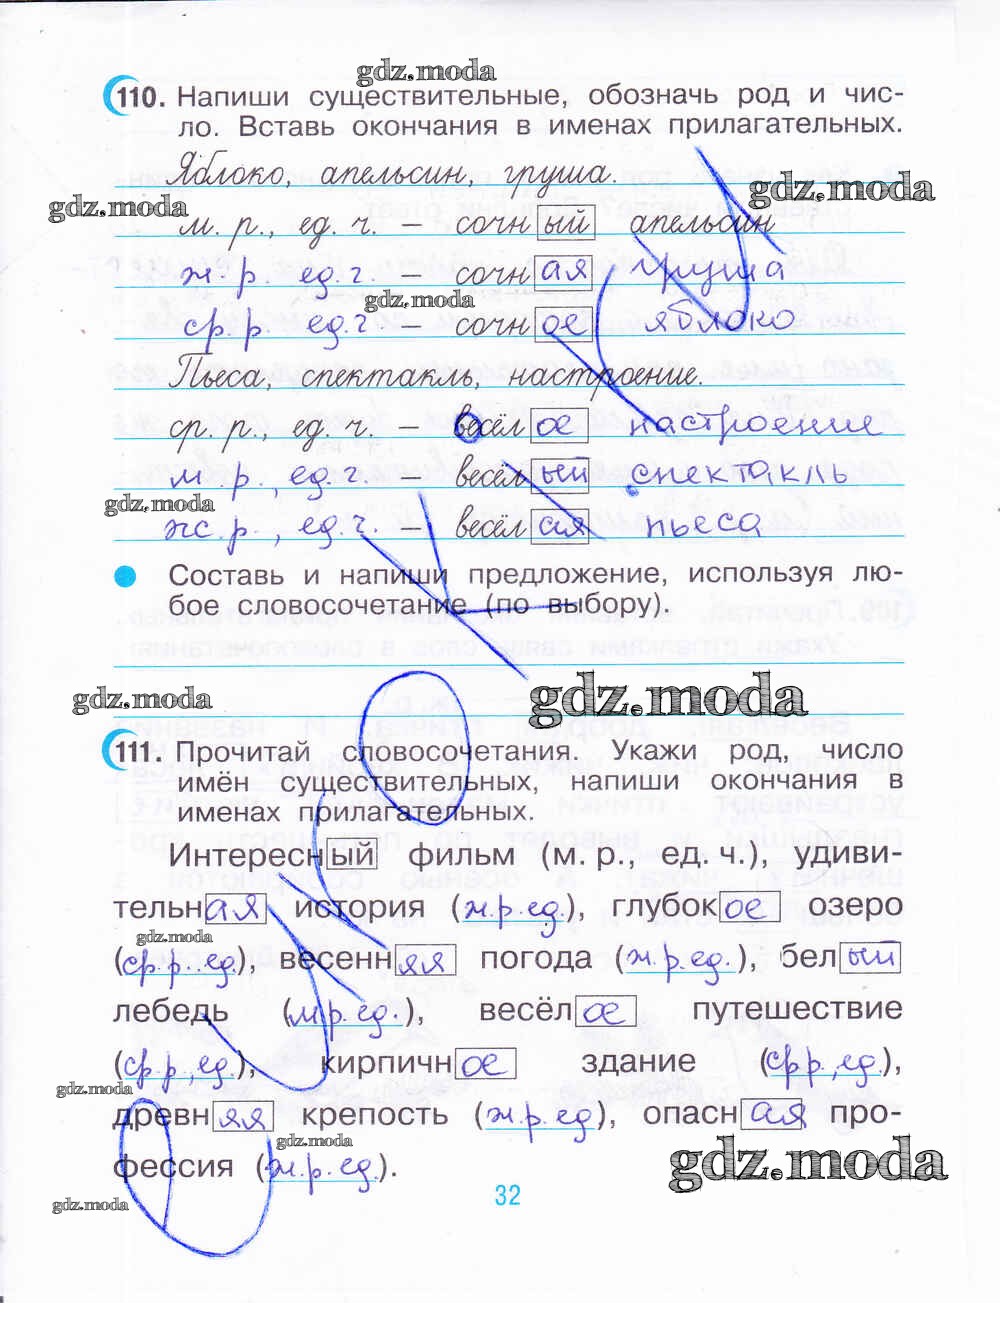 gdz.moda
110. Напиши существительные, обозначь род и чис-
ло. Вставь окончания в именах прилагательных.
Яблоко, апельсин, груша.
gdz.moda
gdz.moda
м. р., ед. ч. – сочн ый апельсин
ж. р. ед. ч. – сочн ая груша
gdz.moda
ср. р. ед. ч – сочн ое яблоко
Пьеса, спектакль, настроение.
ср. р., ед. ч. – весёл ое настроение
м. р., ед. ч. – весёл ый спектакль
gdz.moda
ж. р., ед. ч. – весёл ая пьеса
Составь и напиши предложение, используя лю-
бое словосочетание (по выбору).
gdz.moda
gdz.moda
111. Прочитай словосочетания. Укажи род, число
имён существительных, напиши окончания в
именах прилагательных.
Интересн ый фильм (м. р., ед. ч.), удиви-
тельн ая история (ж.р.ед.), глубок ое озеро
gdz.moda
(ср.р. ед.), весенн яя погода (ж.р.ед.), бел ый
лебедь (м.р.ед.), весёл ое путешествие
(ср.р., ед.), кирпичн ое здание (ср.р., ед.),
gdz.moda
древн яя крепость (ж.р.ед), опасн ая про-
gdz.moda
gdz.moda
фессия (ж.р.ед.).
32
gdz.moda